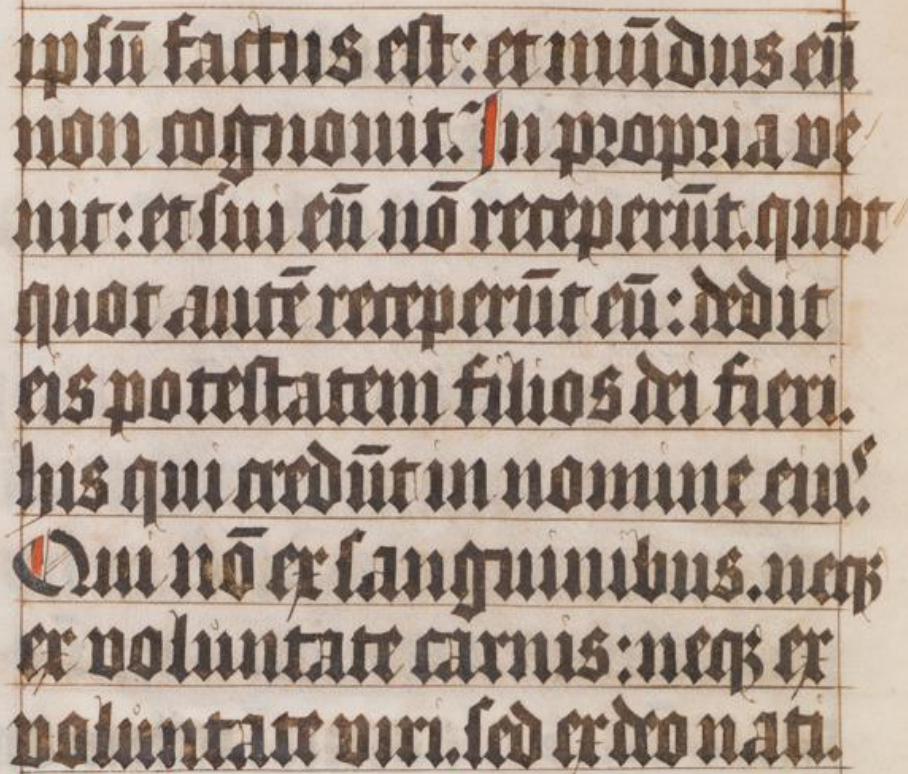 ipsū factus est: et mūdus eū
non cognouit. In propria ve
nit: et sui eū nō receperūt. quot
quot autē receperūt eū: dedit
eis potestatem filios dei fieri.
his qui credūt in nomine eiuſ.
Qui nō ex sanguinibus. neqꝫ
ex voluntate carnis: neqꝫ ex
voluntate viri. sed ex deo nati.